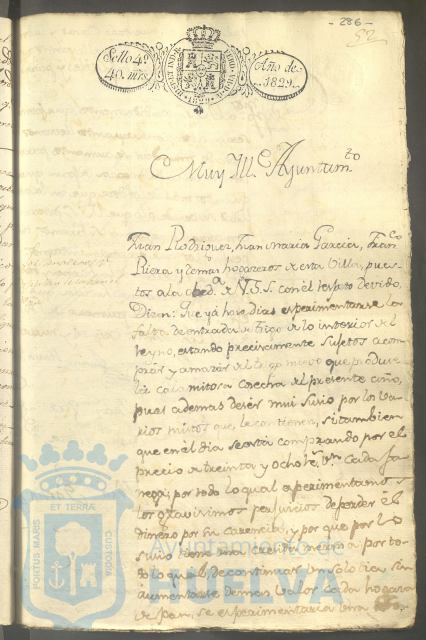 - 286 -
52
Sello 4º
40. mrs.
Año de
1829.
Muy Ill.e Ayuntam.to
Juan Rodriguez, Juan Maria Garcia, Fran.co
Riera y demas hogazeros de esta Villa, pues-
tos a la obed.a de V.S.S. con el respeto devido,
Dizen: Que yá hace dias esperimentarse la
falta de entrada de trigo de lo interior del
Reyno, estando precisamente sujetos a com-
prar y amazar del trigo nuevo que produce
la calamitosa cosecha del presente año,
pues ademas de ser mui sucio por los va-
rios mistos que le contienen, si tambien
que en el dia se está comprando por el
precio de treinta y ocho r.s v.n cada fa-
nega; por todo lo qual esperimentamos
los gravisimos perjuicios de perder el
dinero por su carencia, y por que por lo
sucio tiene una crecida merma por to-
do lo qual de continuar un solo dia sin
aumentarse de mas valor cada hogaza
de pan, se esperimentaria una
ET TERRA
PORTUS MARIS
CUSTODIA
Ayuntamiento de
HUELVA